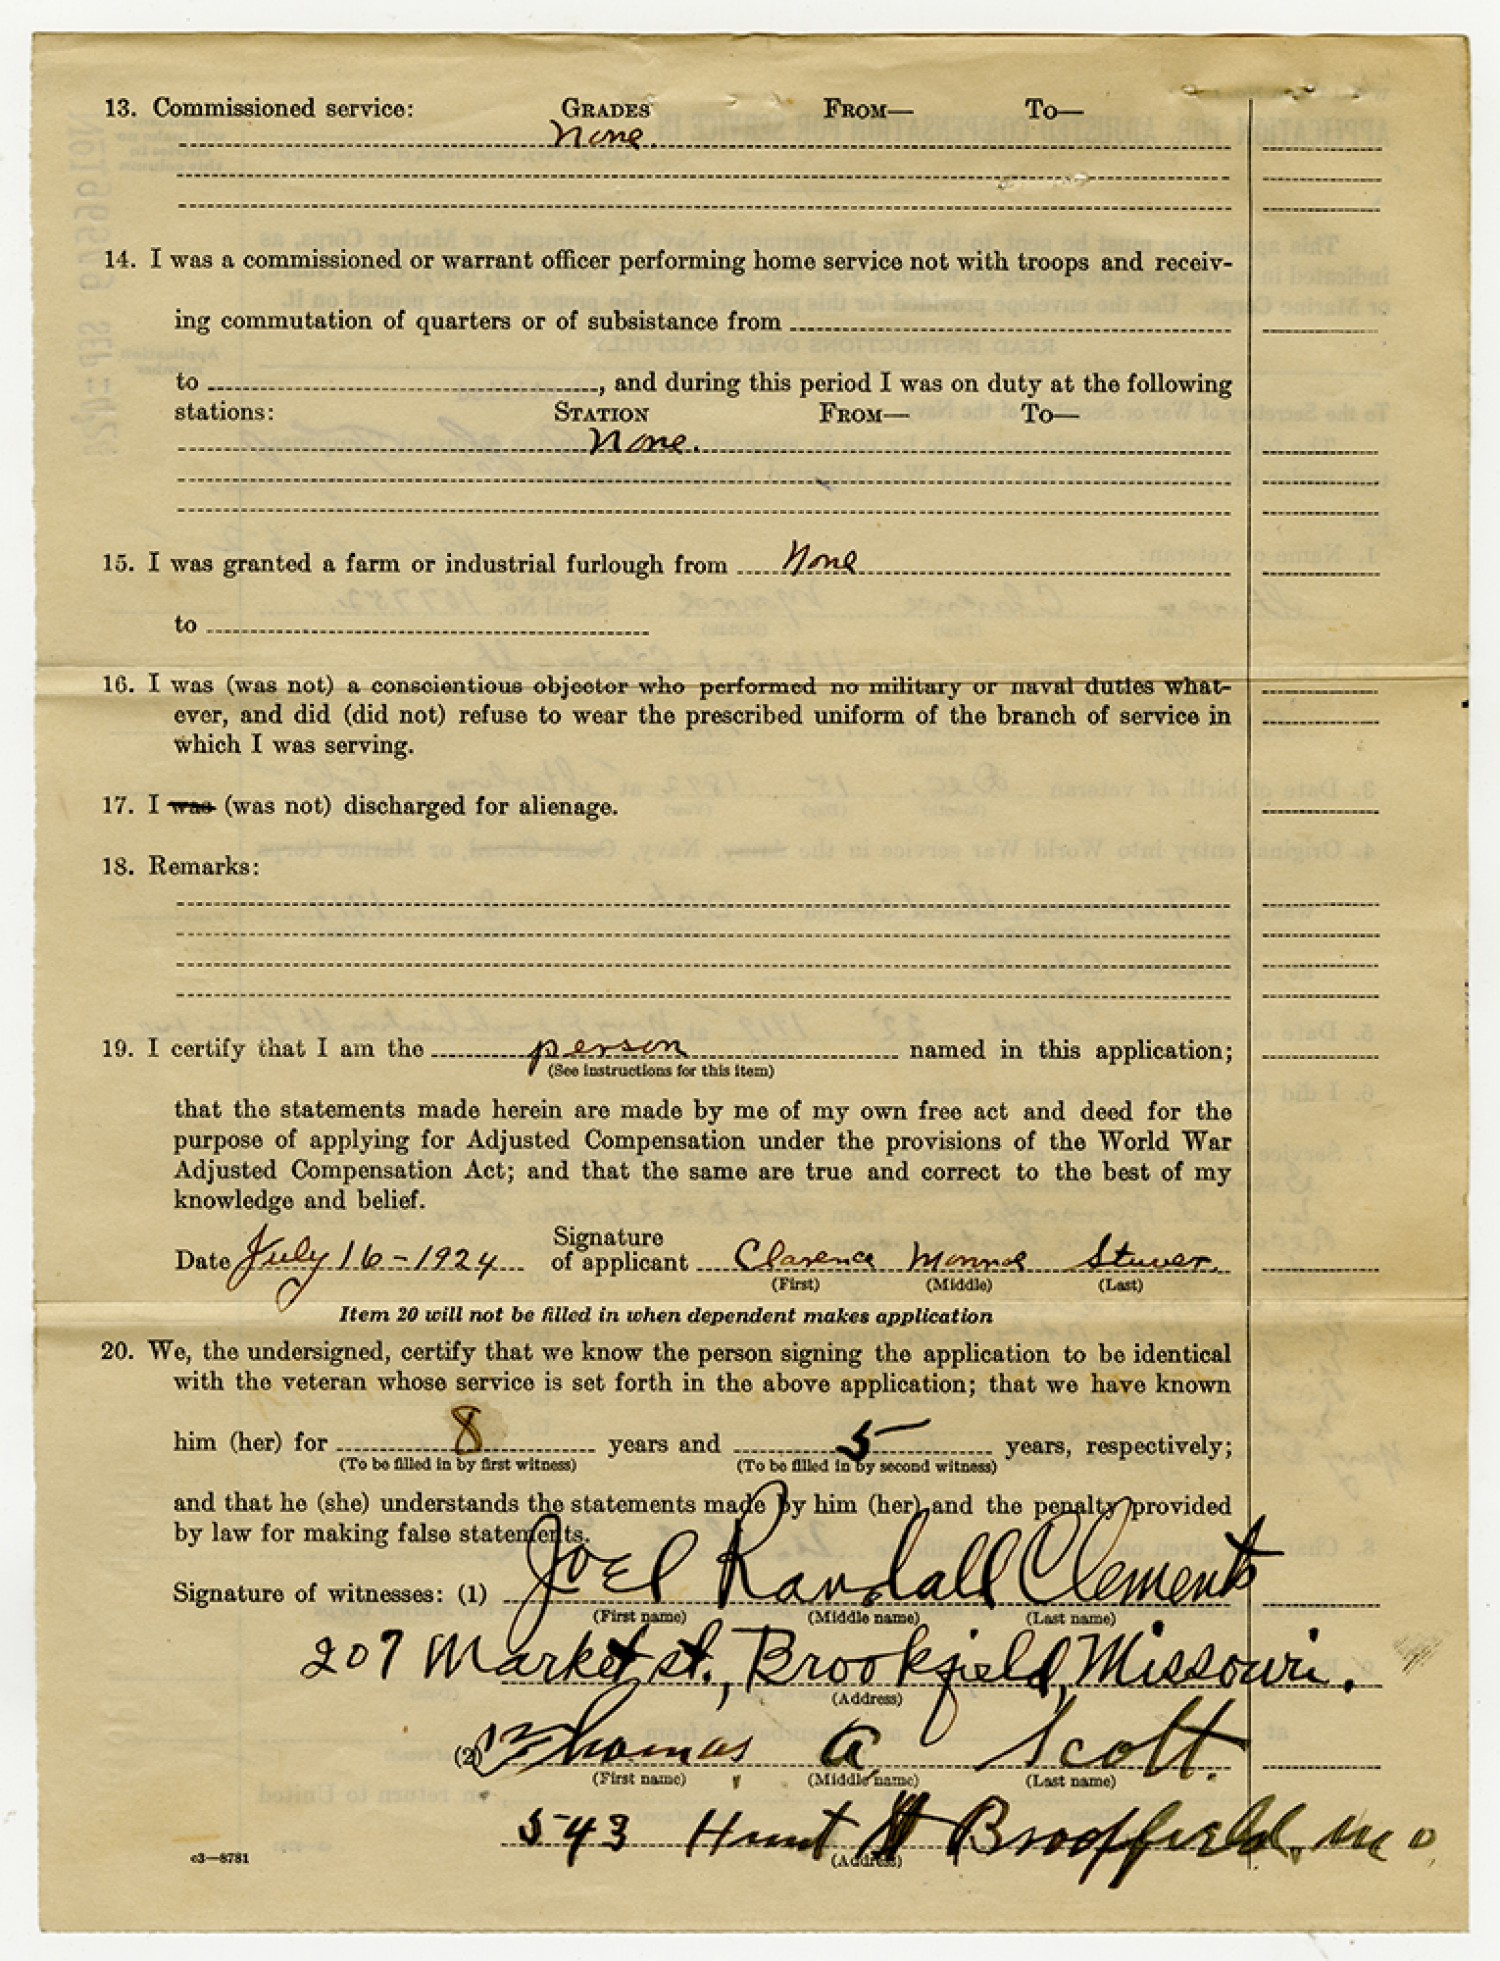 13. Commissioned service: GRADES FROM— TO—
None.
14. I was a commissioned or warrant officer performing home service not with troops and receiv-
ing commutation of quarters or of subsistance from
to , and during this period I was on duty at the following
stations: STATION FROM— TO—
None.
15. I was granted a farm or industrial furlough from None
to
16. I was (was not) a conscientious objector who performed no military or naval duties what-
ever, and did (did not) refuse to wear the prescribed uniform of the branch of service in
which I was serving.
17. I was (was not) discharged for alienage.
18. Remarks:
19. I certify that I am the person named in this application;
(See instructions for this item)
that the statements made herein are made by me of my own free act and deed for the
purpose of applying for Adjusted Compensation under the provisions of the World War
Adjusted Compensation Act; and that the same are true and correct to the best of my
knowledge and belief.
Date July 16-1924 Signature of applicant Clarence Monroe Stuver.
(First) (Middle) (Last)
Item 20 will not be filled in when dependent makes application
20. We, the undersigned, certify that we know the person signing the application to be identical
with the veteran whose service is set forth in the above application; that we have known
him (her) for 8 years and 5 years, respectively;
(To be filled in by first witness) (To be filled in by second witness)
and that he (she) understands the statements made by him (her) and the penalty provided
by law for making false statements.
Signature of witnesses: (1) Joel Randall Clements
(First name) (Middle name) (Last name)
207 Market st., Brookfield, Missouri.
(Address)
(2) Thomas A Scott.
(First name) (Middle name) (Last name)
543 Hunt St Brookfield, Mo
(Address)
c3—8781